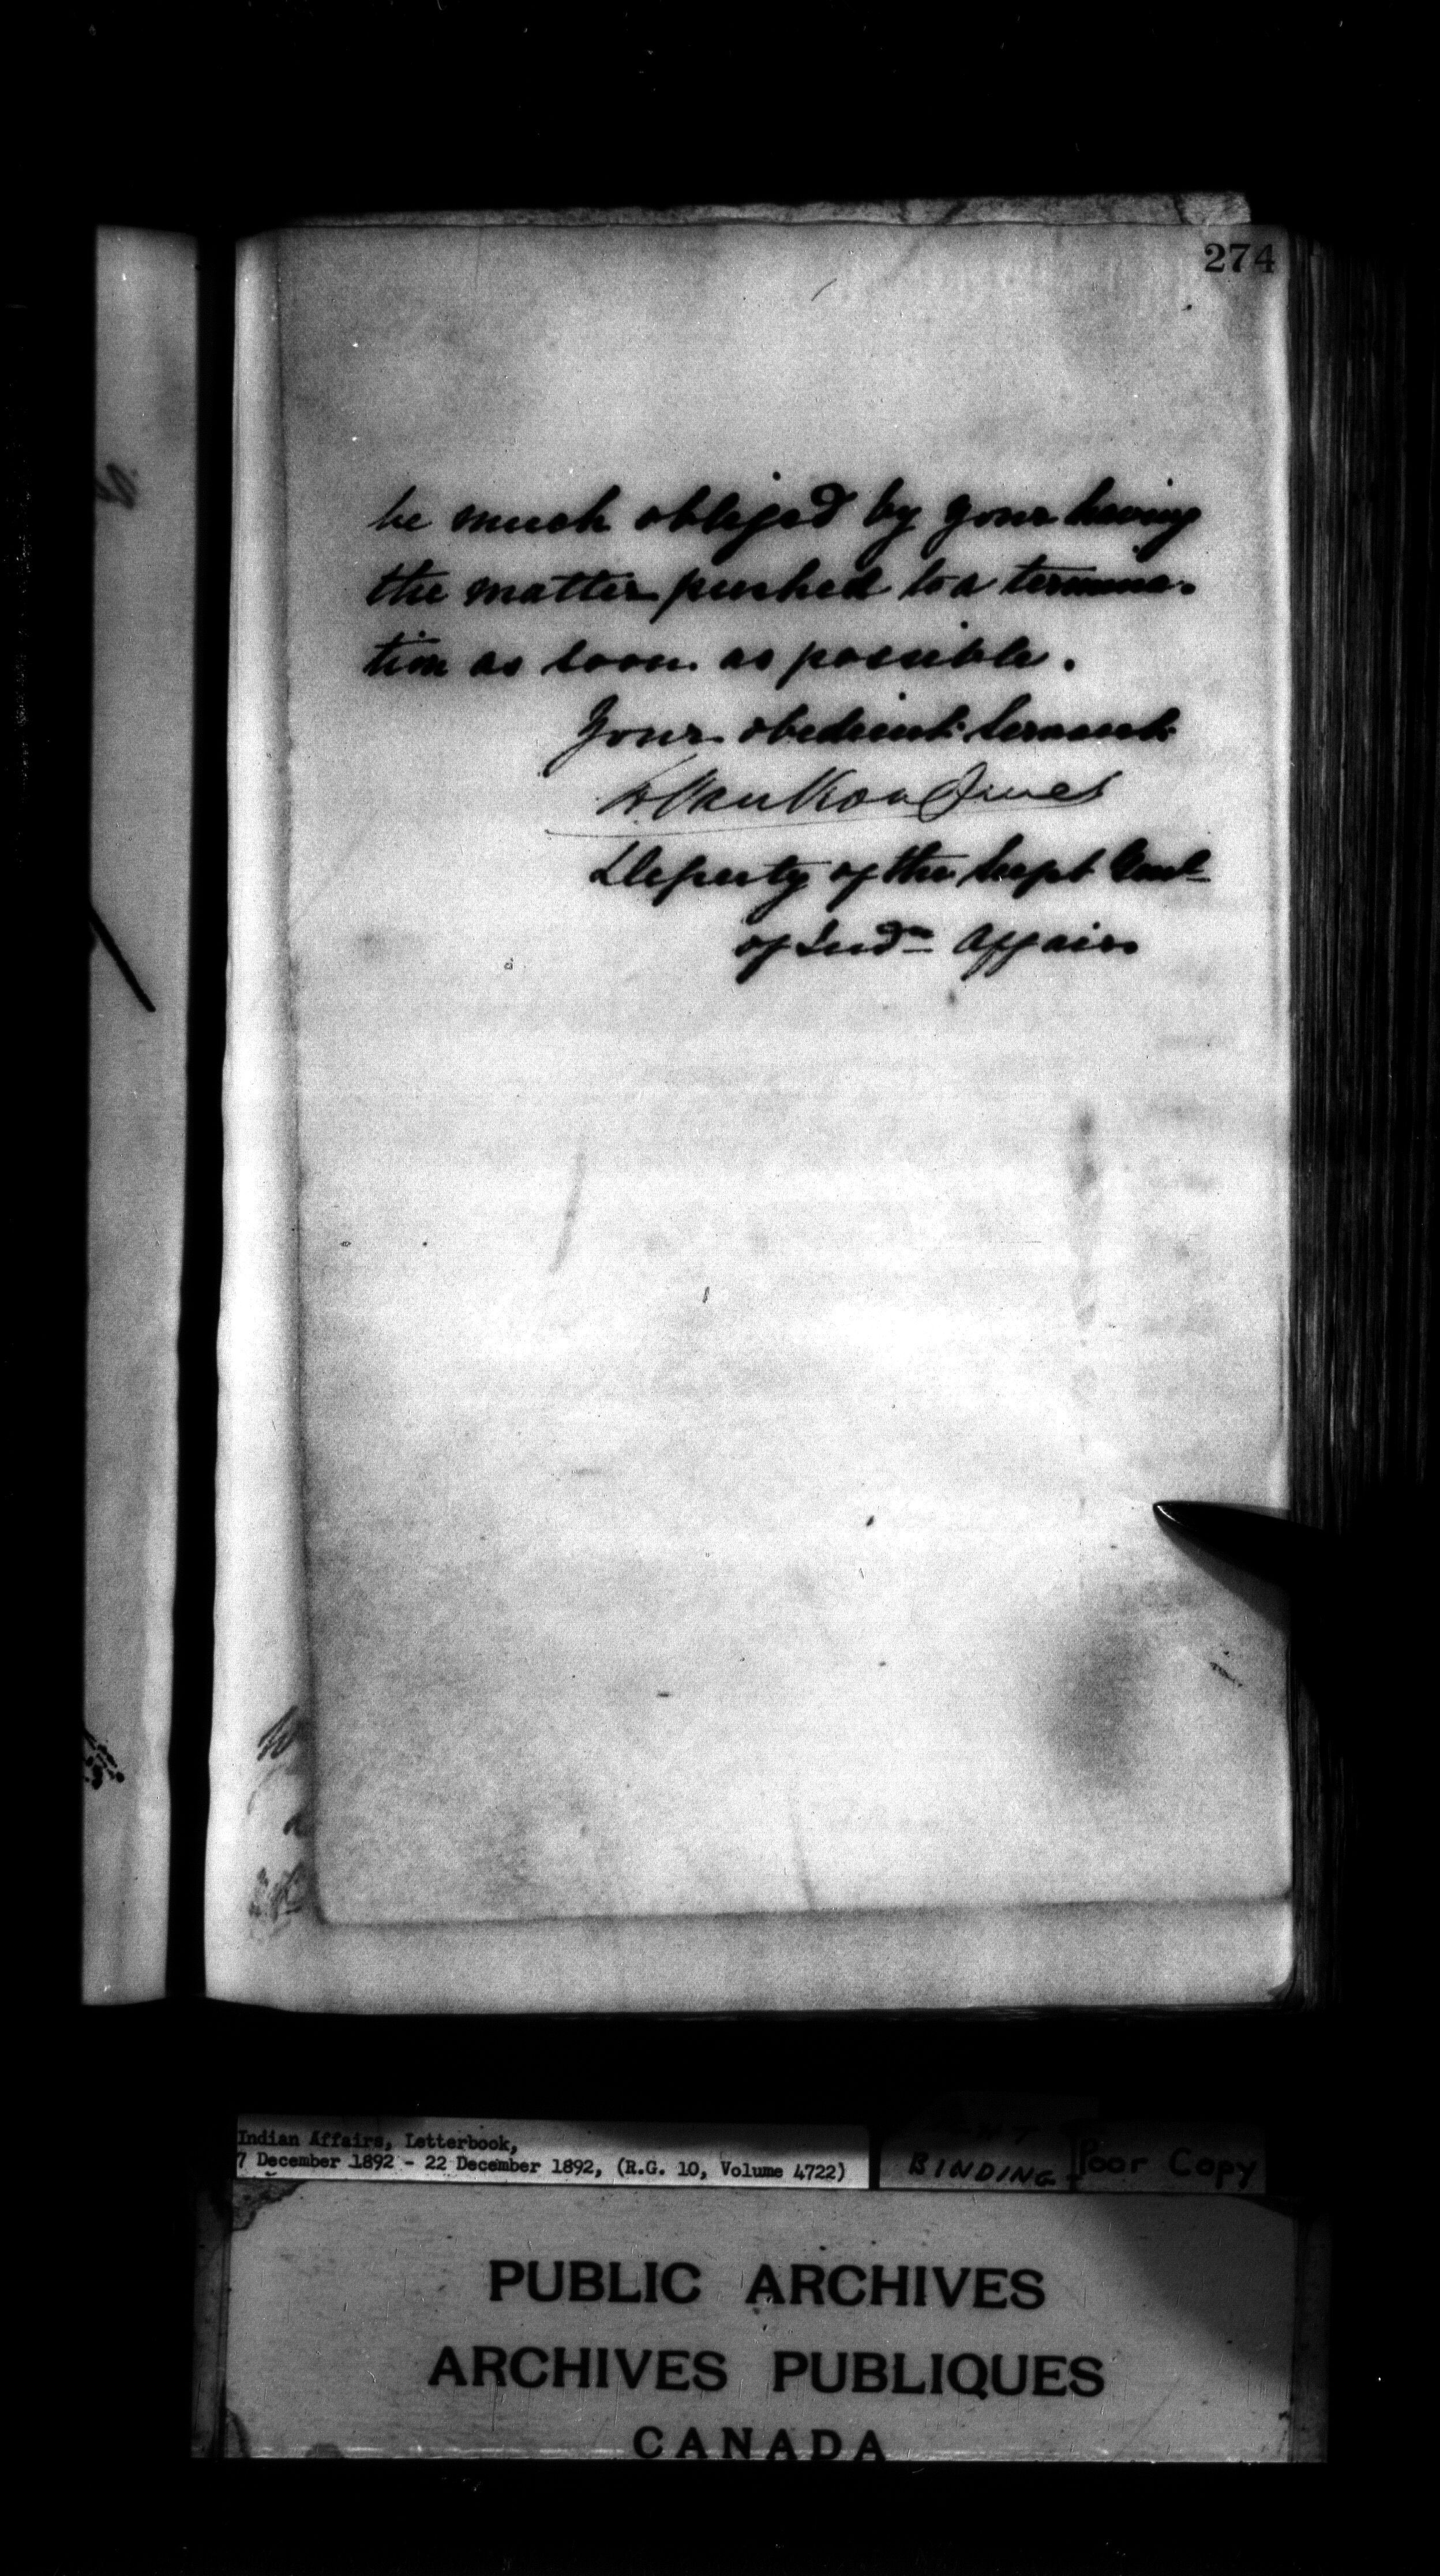 274
be much obliged by your having
the matter pushed to a termina-
tion as soon as possible.
Your obedient servant
L. Vankoughnet
Deputy of the Supt Genl
of Indn Affairs
Indian Affairs, Letterbook,
7 December 1892 - 22 December 1892, (R.G. 10, Volume 4722)
BINDING
Poor Copy
PUBLIC ARCHIVES
ARCHIVES PUBLIQUES
CANADA